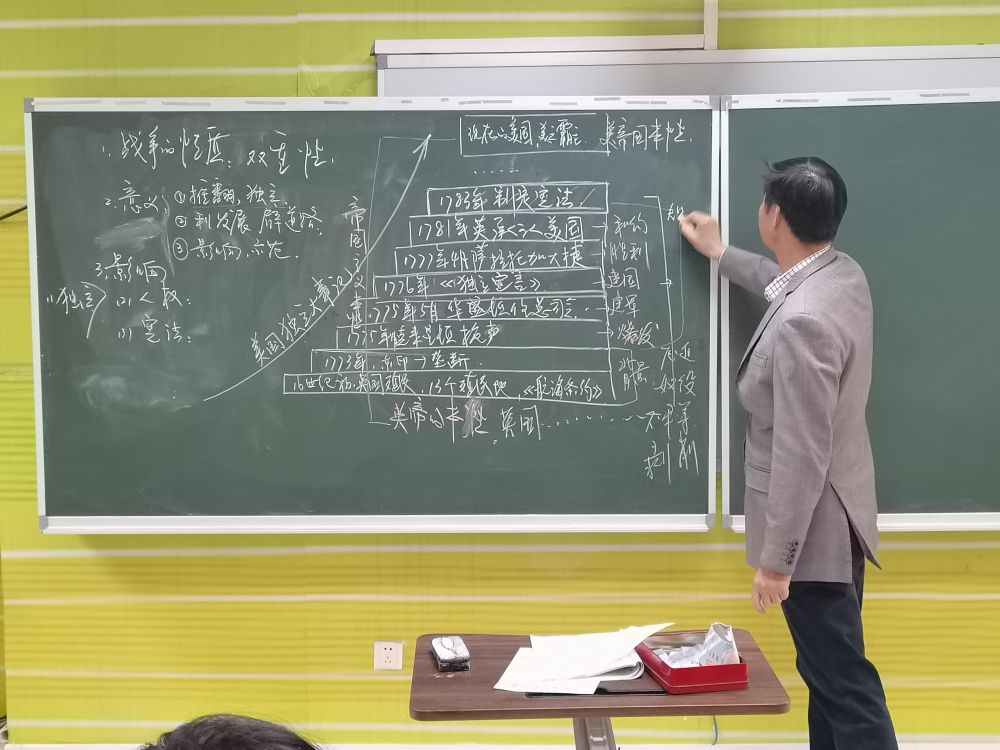 1. 战争的性质：双重性.
2. 意义：①推翻，独立.
② 利发展 辟道路.
③ 影响，示范.
3. 影响
(1)独立
(2)人权：
(3)宪法：
美国独立大意义
帝国主义
现在的美国，美霸 美帝国本性.
......
1783年 制定宪法.
1781年英承认美国
1777年 萨拉托加大捷
1776年《独立宣言》
1775年5月 华盛顿任总司令.
1775年 莱克星顿枪声
1773年. 东印→垄断.
16世纪初，英国殖民，13个殖民地，《航海条约》
和约
胜利
建国
建军
爆发
英帝的本性 英国 ......
压迫
奴役
不平等
剥削